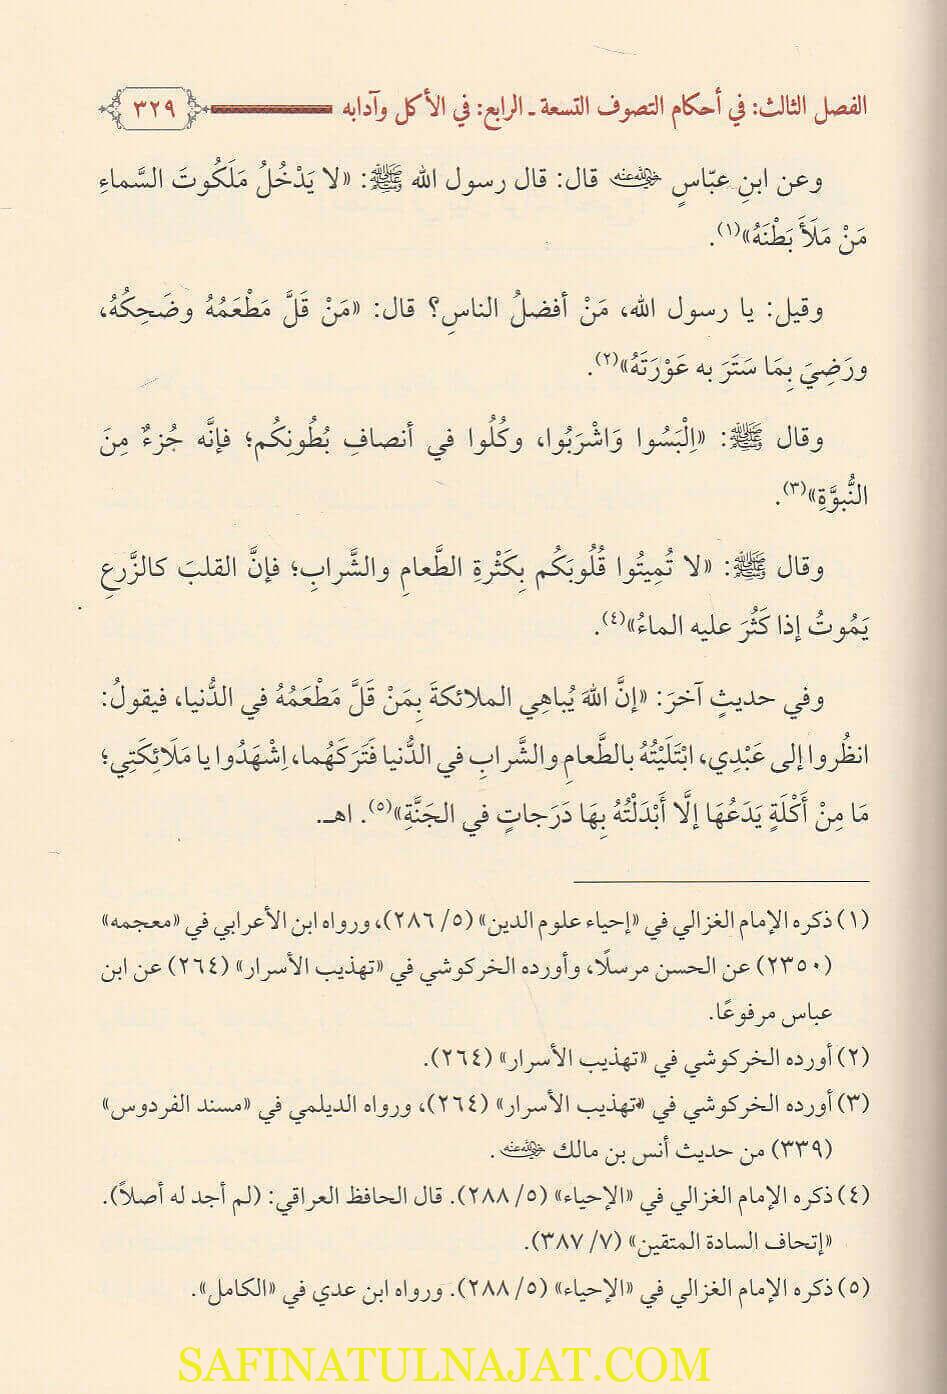 الفصل الثالث: في أحكام التصوف التسعة ـ الرابع: في الأكل وآدابه ٣٢٩
وعن ابنِ عبّاسٍ رضي الله عنه قال: قال رسول الله ﷺ: «لا يَدْخُلُ مَلَكُوتَ السَّماءِ
مَنْ مَلَأَ بَطْنَهُ»(١).
وقيل: يا رسول الله، مَنْ أفضلُ الناسِ؟ قال: «مَنْ قَلَّ مَطْعَمُهُ وضَحِكُهُ،
ورَضِيَ بِمَا سَتَرَ به عَوْرَتَهُ»(٢).
وقال ﷺ: «اِلْبَسُوا وَاشْرَبُوا، وكُلُوا في أنصافِ بُطُونِكُم؛ فإنَّه جُزءٌ مِنَ
النُّبوَّةِ»(٣).
وقال ﷺ: «لا تُمِيتُوا قُلُوبَكُم بِكَثْرةِ الطَّعامِ والشَّرابِ؛ فإنَّ القلبَ كالزَّرعِ
يَمُوتُ إذا كَثُرَ عليه الماءُ»(٤).
وفي حديثٍ آخرَ: «إنَّ اللهَ يُباهِي الملائكةَ بِمَنْ قَلَّ مَطْعَمُهُ في الدُّنيا، فيقولُ:
انظُروا إلى عَبْدِي، ابْتَلَيْتُهُ بالطَّعامِ والشَّرابِ في الدُّنيا فَتَرَكَهُما، اِشْهَدُوا يا مَلَائِكَتِي؛
مَا مِنْ أَكْلَةٍ يَدَعُهَا إلَّا أَبْدَلْتُهُ بِهَا دَرَجاتٍ في الجَنَّةِ»(٥). اهـ.
(١) ذكره الإمام الغزالي في «إحياء علوم الدين» (٥/ ٢٨٦)، ورواه ابن الأعرابي في «معجمه»
(٢٣٥٠) عن الحسن مرسلًا، وأورده الخركوشي في «تهذيب الأسرار» (٢٦٤) عن ابن
عباس مرفوعًا.
(٢) أورده الخركوشي في «تهذيب الأسرار» (٢٦٤).
(٣) أورده الخركوشي في «تهذيب الأسرار» (٢٦٤)، ورواه الديلمي في «مسند الفردوس»
(٣٣٩) من حديث أنس بن مالك رضي الله عنه.
(٤) ذكره الإمام الغزالي في «الإحياء» (٥/ ٢٨٨). قال الحافظ العراقي: (لم أجد له أصلاً).
«إتحاف السادة المتقين» (٧/ ٣٨٧).
(٥) ذكره الإمام الغزالي في «الإحياء» (٥/ ٢٨٨). ورواه ابن عدي في «الكامل».
SAFINATULNAJAT.COM